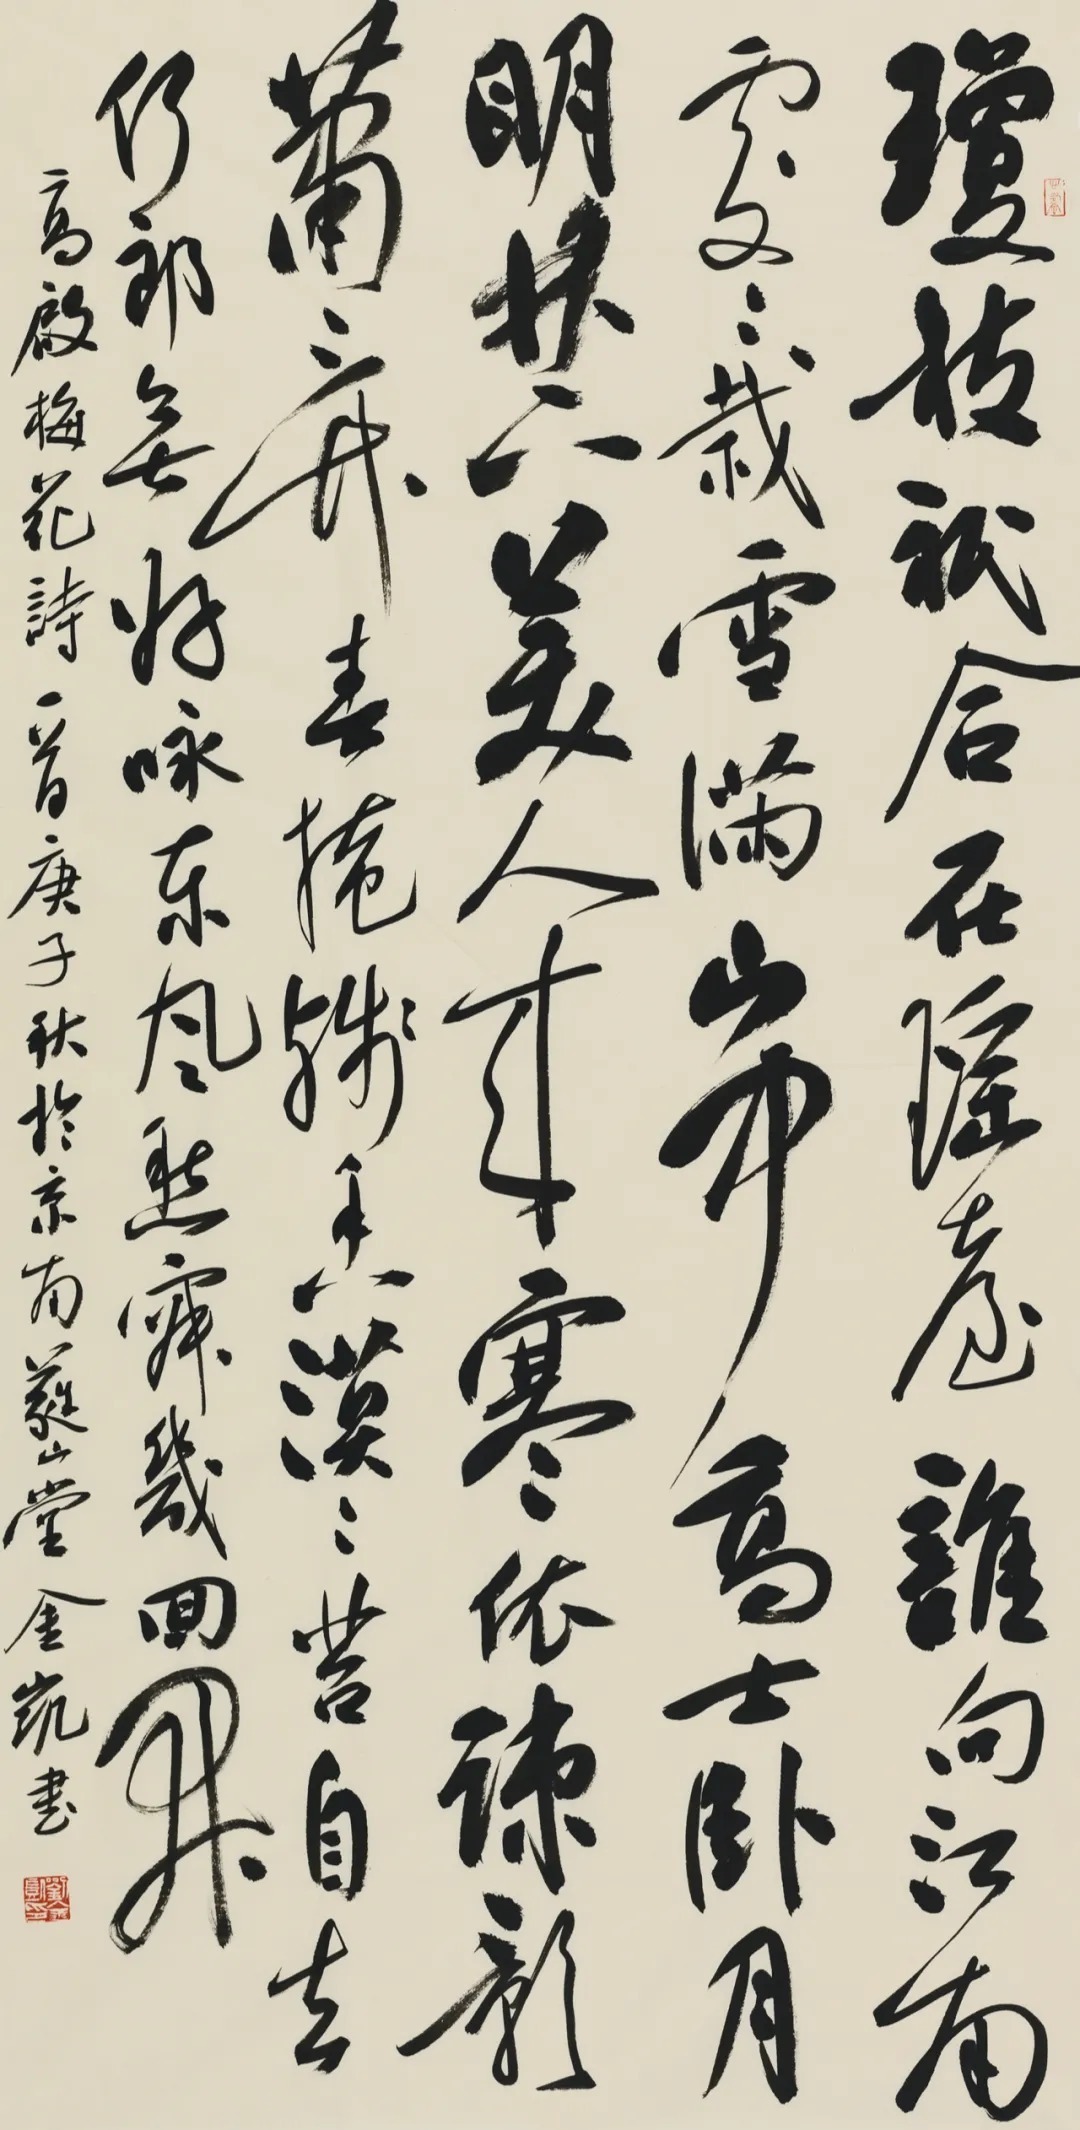 瓊枝祇合在瑤臺誰向江南
處〻栽雪滿山中高士卧月
明林下美人来寒依疎影
蕭〻竹春掩殘香漠〻苔自去
何郎無好咏東風愁寂幾回開
高啟梅花詩一首庚子秋於京南山堂金凱書
劉金凱印